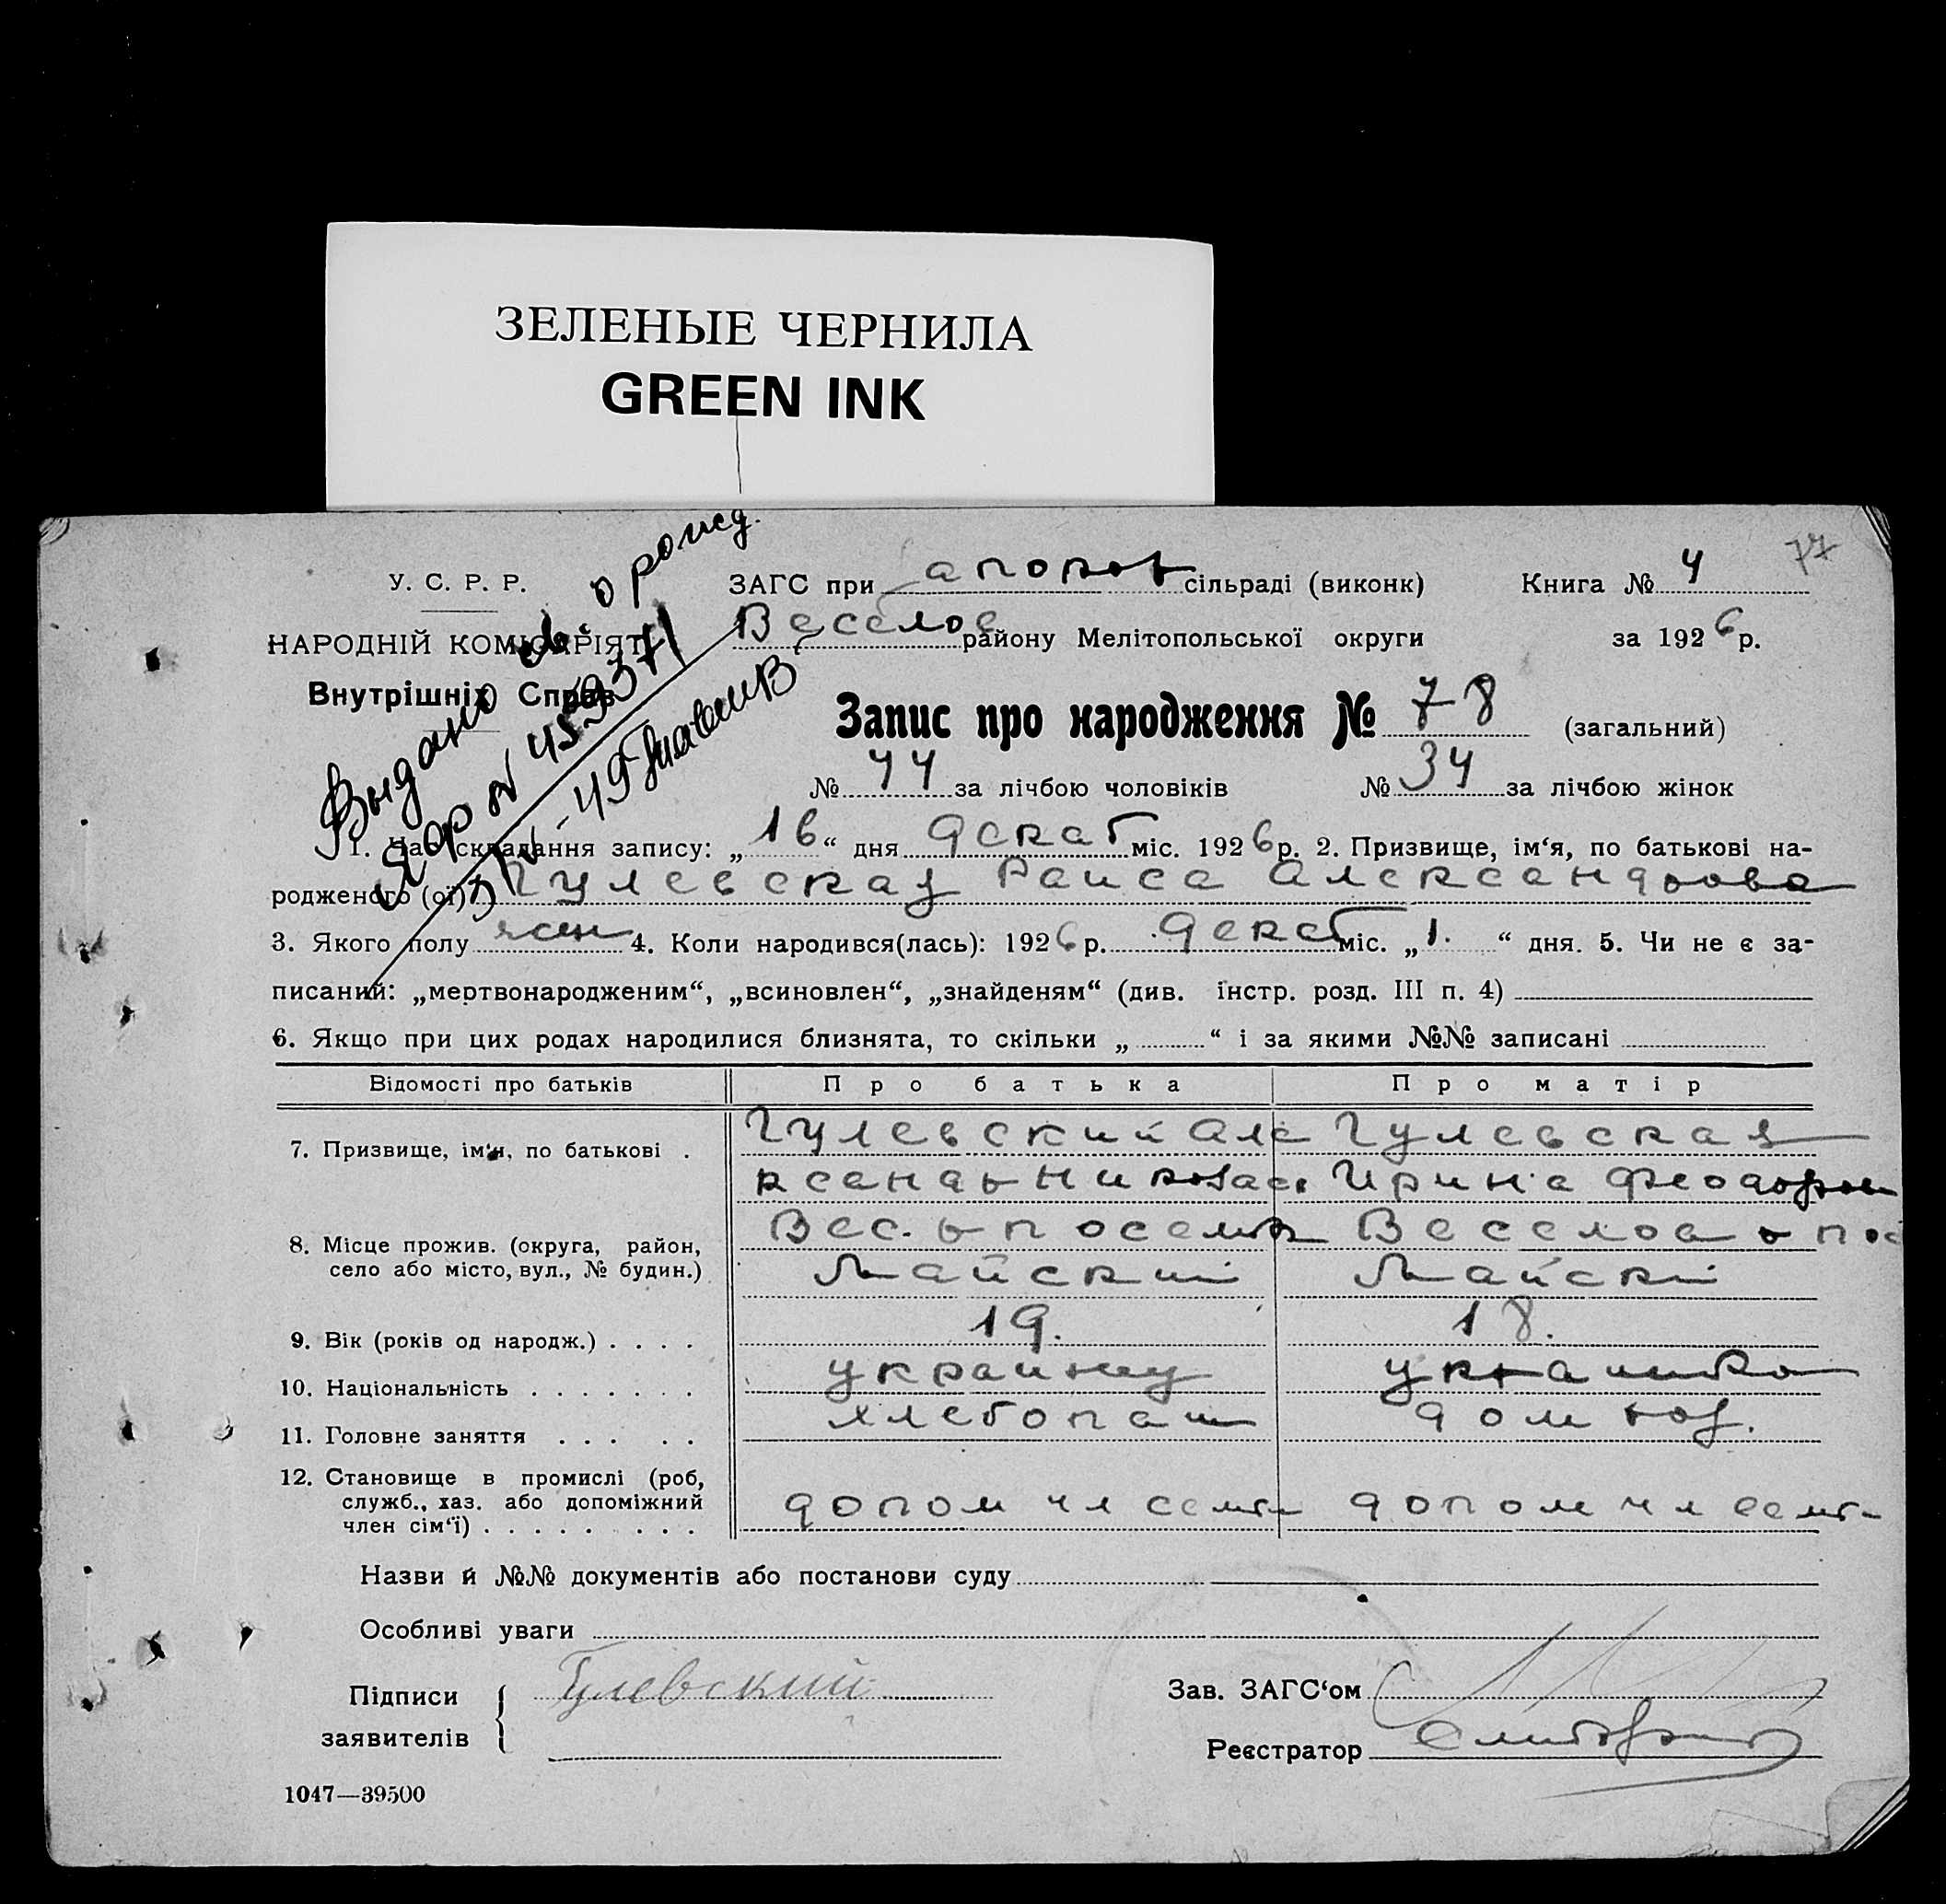 ЗЕЛЕНЫЕ ЧЕРНИЛА
GREEN INK
77
У. С. Р. Р.
НАРОДНІЙ КОМІСАРІЯТ
Внутрішніх Справ
Выдано о рожд.
ЗАГС при сільраді (виконк) Книга № 4
Веселое району Мелітопольської округи за 1926 р.
Запис про народження № 78 (загальний)
№ 44 за лічбою чоловіків № 34 за лічбою жінок
1. Час складання запису: „16“ дня декаб міс. 1926 р. 2. Призвище, ім‘я, по батькові на-
родженого (ої) Гулевская Раиса Александрова
3. Якого полу жен 4. Коли народився(лась): 1926 р. декаб міс. „1.“ дня. 5. Чи не є за-
писаний: „мертвонародженим“, „всиновлен“, „знайденям“ (див. інстр. розд. III п. 4)
6. Якщо при цих родах народилися близнята, то скільки „ “ і за якими №№ записані
Відомості про батьків Про батька Про матір
7. Призвище, ім‘я, по батькові . Гулевский Але Гулевская
ксандр Николаев Ирина Феодоров
8. Місце прожив. (округа, район, Вес. р поселк Веселое р пос
село або місто, вул., № будин.) Майский Майскі
9. Вік (років од народж.) . . . . 19. 18.
10. Національність . . . . . . . украинец украинка
11. Головне заняття . . . . . хлебопаш дом хоз.
12. Становище в промислі (роб,
служб., хаз. або допоміжний допом чл семт допом чл семт
член сім‘ї) . . . . . . . . .
Назви й №№ документів або постанови суду
Особливі уваги
Підписи Гулевский Зав. ЗАГС‘ом
заявителів Реєстратор
1047—39500